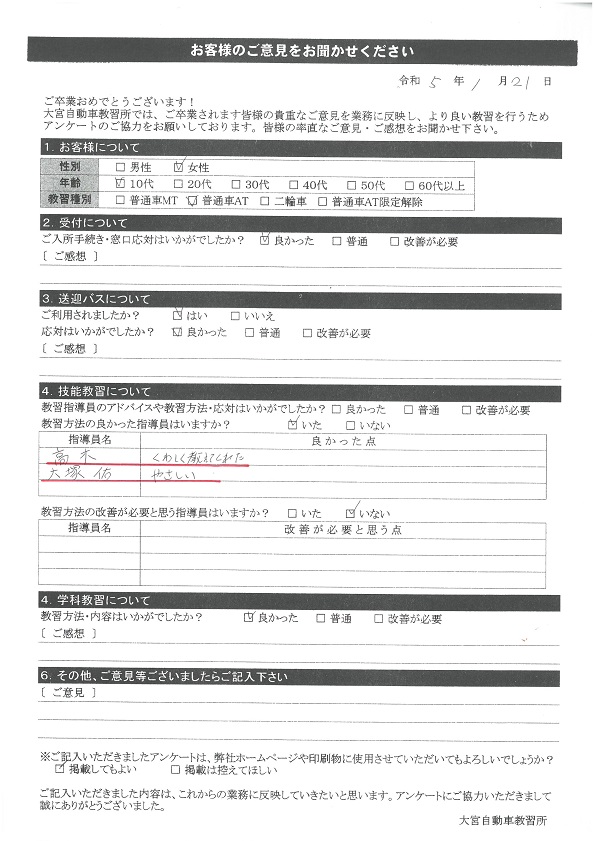 お客様のご意見をお聞かせください
令和 5 年 1 月 21 日
ご卒業おめでとうございます！
大宮自動車教習所では、ご卒業されます皆様の貴重なご意見を業務に反映し、より良い教習を行うため
アンケートのご協力をお願いしております。皆様の率直なご意見・ご感想をお聞かせ下さい。
1. お客様について
性別 □ 男性 ☑ 女性
年齢 ☑ 10代 □ 20代 □ 30代 □ 40代 □ 50代 □ 60代以上
教習種別 □ 普通車MT ☑ 普通車AT □ 二輪車 □ 普通車AT限定解除
2. 受付について
ご入所手続き・窓口応対はいかがでしたか？ ☑ 良かった □ 普通 □ 改善が必要
［ ご感想 ］
3. 送迎バスについて
ご利用されましたか？ ☑ はい □ いいえ
応対はいかがでしたか？ ☑ 良かった □ 普通 □ 改善が必要
［ ご感想 ］
4. 技能教習について
教習指導員のアドバイスや教習方法・応対はいかがでしたか？ □ 良かった □ 普通 □ 改善が必要
教習方法の良かった指導員はいますか？ ☑ いた □ いない
指導員名 良かった点
高木 くわしく教えてくれた
大塚 佑 やさしい
教習方法の改善が必要と思う指導員はいますか？ □ いた ☑ いない
指導員名 改善が必要と思う点
4. 学科教習について
教習方法・内容はいかがでしたか？ ☑ 良かった □ 普通 □ 改善が必要
［ ご感想 ］
6. その他、ご意見等ございましたらご記入下さい
［ ご意見 ］
※ご記入いただきましたアンケートは、弊社ホームページや印刷物に使用させていただいてもよろしいでしょうか？
☑ 掲載してもよい □ 掲載は控えてほしい
ご記入いただきました内容は、これからの業務に反映していきたいと思います。アンケートにご協力いただきまして
誠にありがとうございました。
大宮自動車教習所